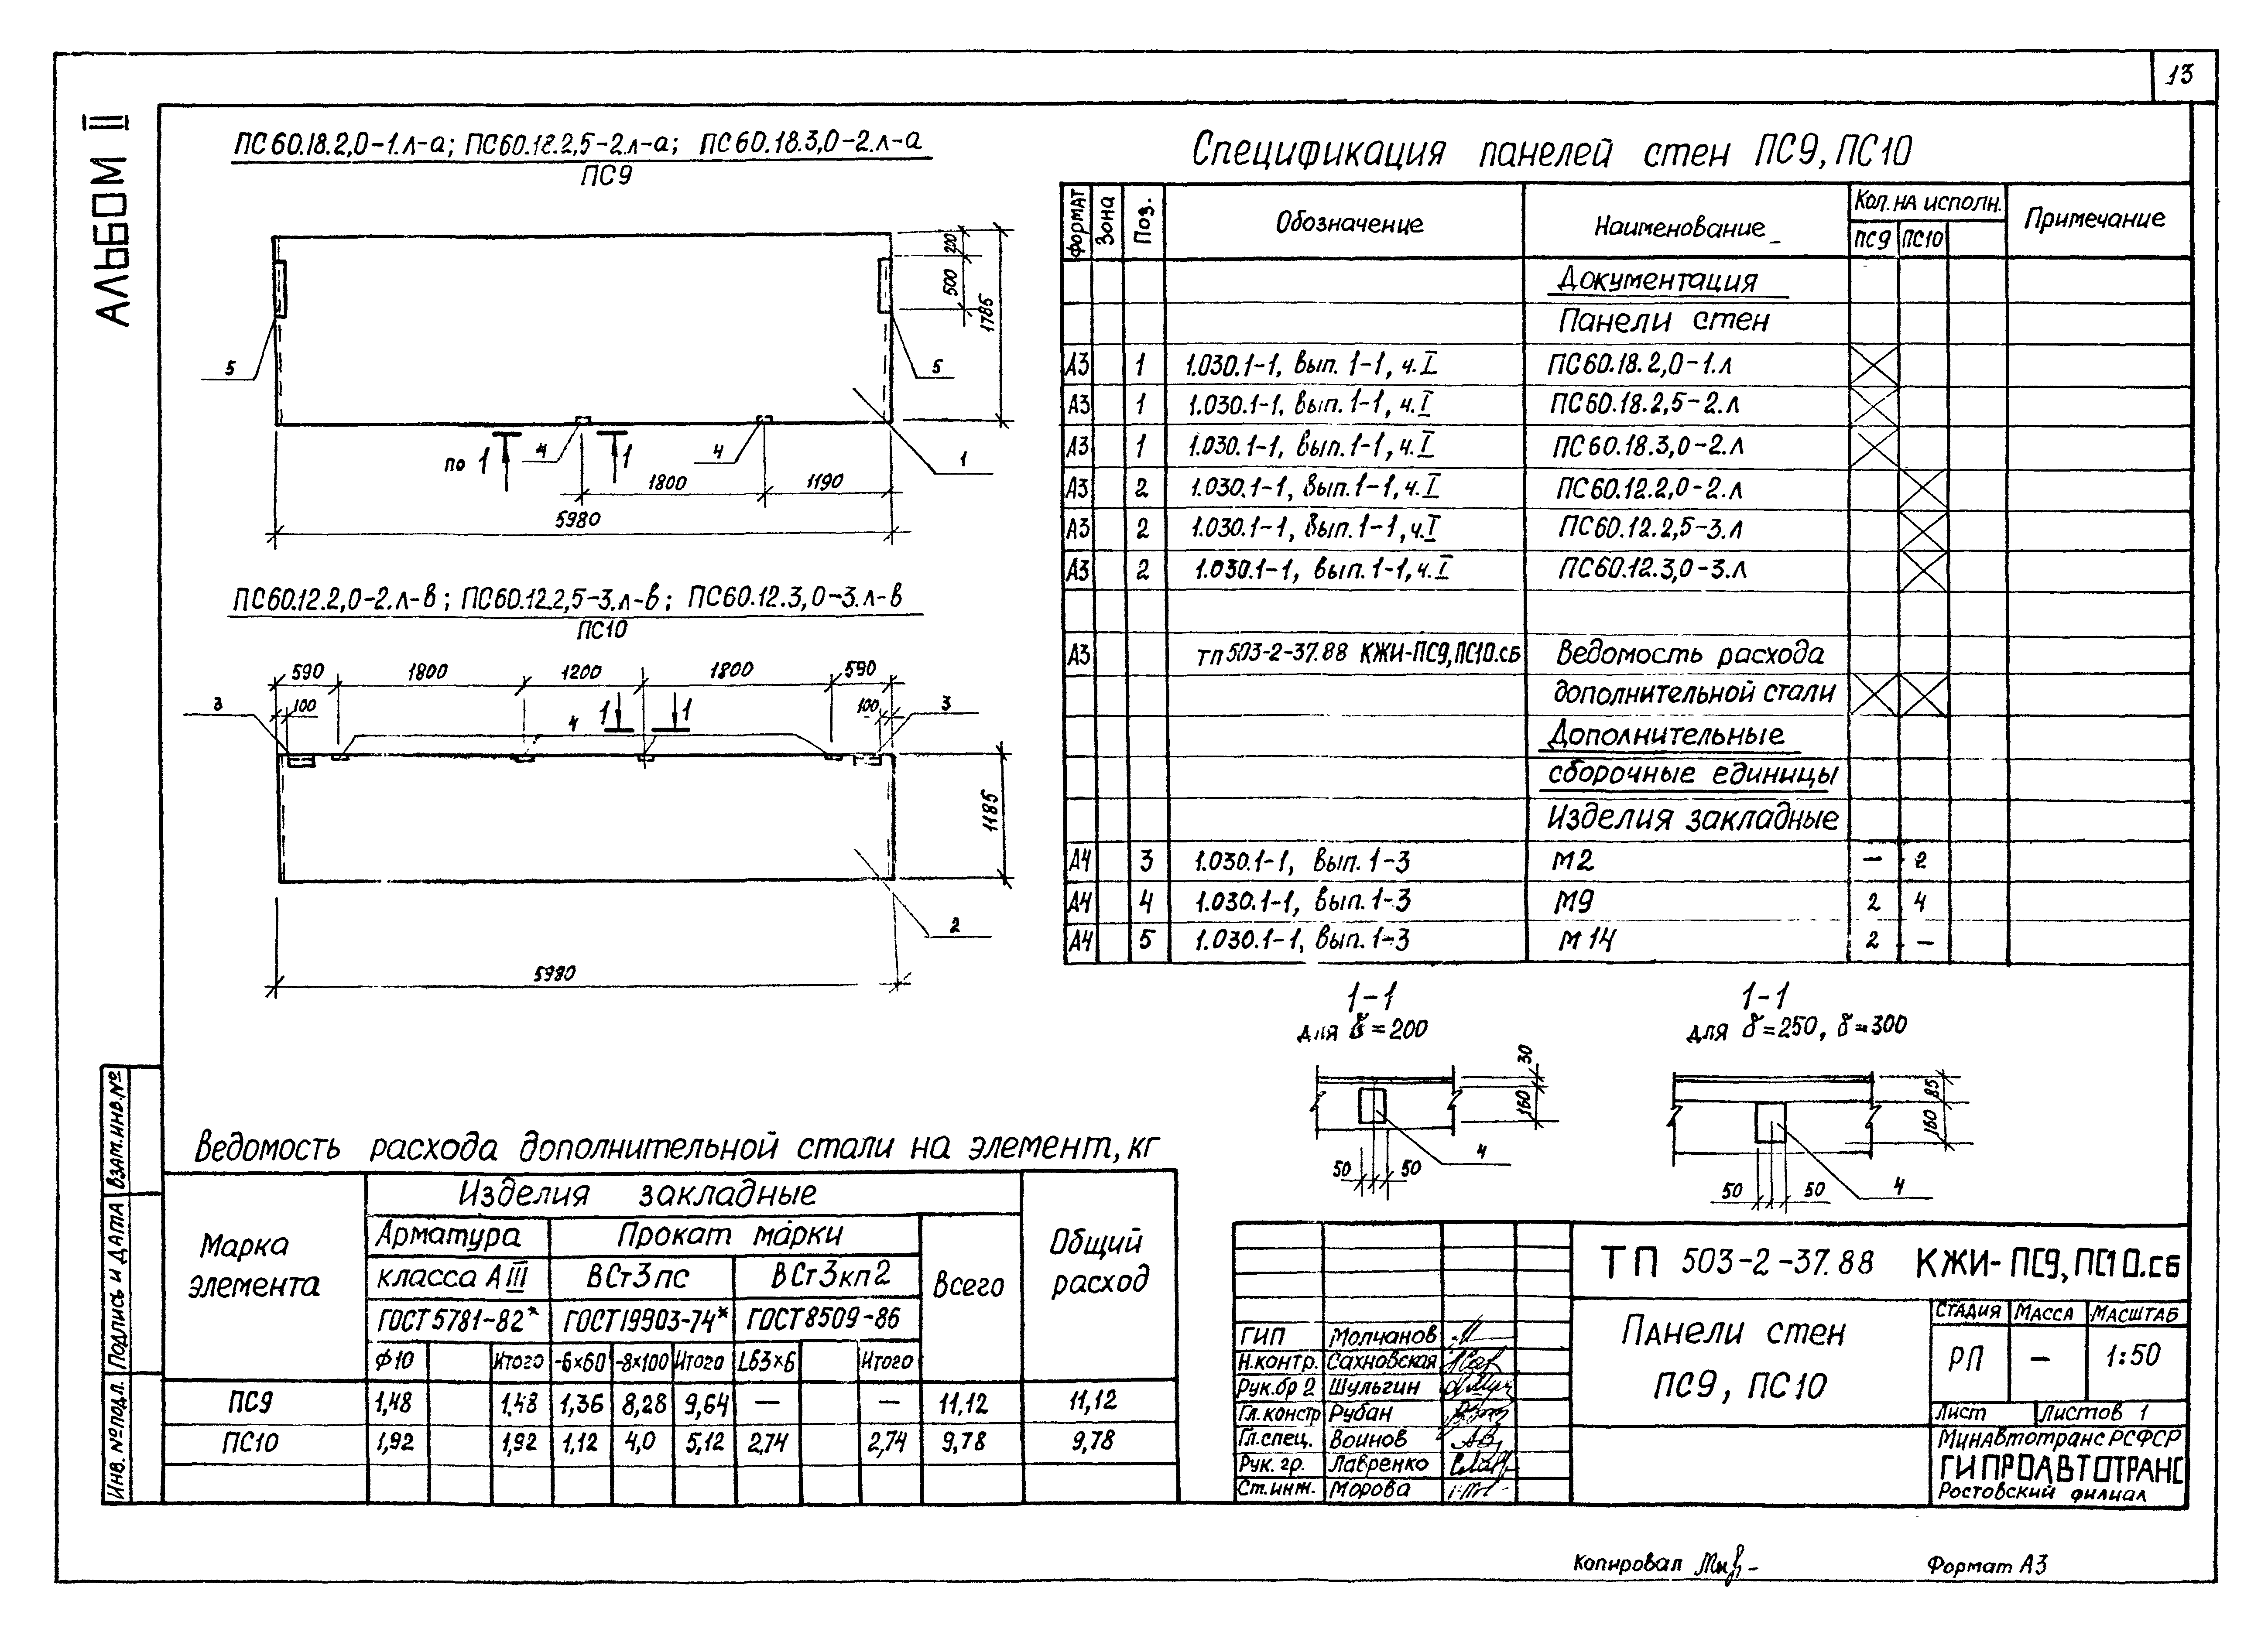 13
АЛЬБОМ II
ПС60.18.2,0-1.л-а; ПС60.18.2,5-2.л-а; ПС60.18.3,0-2.л-а
ПС9
200
500
1785
5
5
4
4
1
по 1
1
1800
1190
5980
ПС60.12.2,0-2.л-в; ПС60.12.2,5-3.л-в; ПС60.12.3,0-3.л-в
ПС10
590 1800 1200 1800 590
3 100 4 1 1 100 3
1185
2
5980
Спецификация панелей стен ПС9, ПС10
Формат Зона Поз. Обозначение Наименование Кол. на исполн. Примечание
ПС9 ПС10
Документация
Панели стен
А3 1 1.030.1-1, вып. 1-1, ч.I ПС60.18.2,0-1.л
А3 1 1.030.1-1, вып. 1-1, ч.I ПС60.18.2,5-2.л
А3 1 1.030.1-1, вып. 1-1, ч.I ПС60.18.3,0-2.л
А3 2 1.030.1-1, вып. 1-1, ч.I ПС60.12.2,0-2.л
А3 2 1.030.1-1, вып. 1-1, ч.I ПС60.12.2,5-3.л
А3 2 1.030.1-1, вып. 1-1, ч.I ПС60.12.3,0-3.л
А3 тп 503-2-37.88 КЖИ-ПС9,ПС10.сб Ведомость расхода
дополнительной стали
Дополнительные
сборочные единицы
Изделия закладные
А4 3 1.030.1-1, вып. 1-3 М2 — 2
А4 4 1.030.1-1, вып. 1-3 М9 2 4
А4 5 1.030.1-1, вып. 1-3 М14 2 —
1-1
для δ=200
30
160
4
50 50
1-1
для δ=250, δ=300
85
160
4
50 50
Ведомость расхода дополнительной стали на элемент, кг
Марка элемента
Изделия закладные
Общий расход
Арматура Прокат марки
Всего
класса АIII ВСт3пс ВСт3кп2
ГОСТ 5781-82* ГОСТ 19903-74* ГОСТ 8509-86
ф10 Итого -6×60 -8×100 Итого L63×6 Итого
ПС9 1,48 1,48 1,36 8,28 9,64 — — 11,12 11,12
ПС10 1,92 1,92 1,12 4,0 5,12 2,74 2,74 9,78 9,78
Инв. № подл. Подпись и дата Взам. инв. №
ТП 503-2-37.88 КЖИ-ПС9,ПС10.сб
ГИП Молчанов
Н.контр. Сахновская
Рук.бр 2 Шульгин
Гл.констр Рубан
Гл.спец. Воинов
Рук. гр. Лавренко
Ст.инж. Морова
Панели стен
ПС9, ПС10
Стадия Масса Масштаб
РП — 1:50
Лист Листов 1
Минавтотранс РСФСР
ГИПРОАВТОТРАНС
Ростовский филиал
Копировал
Формат А3